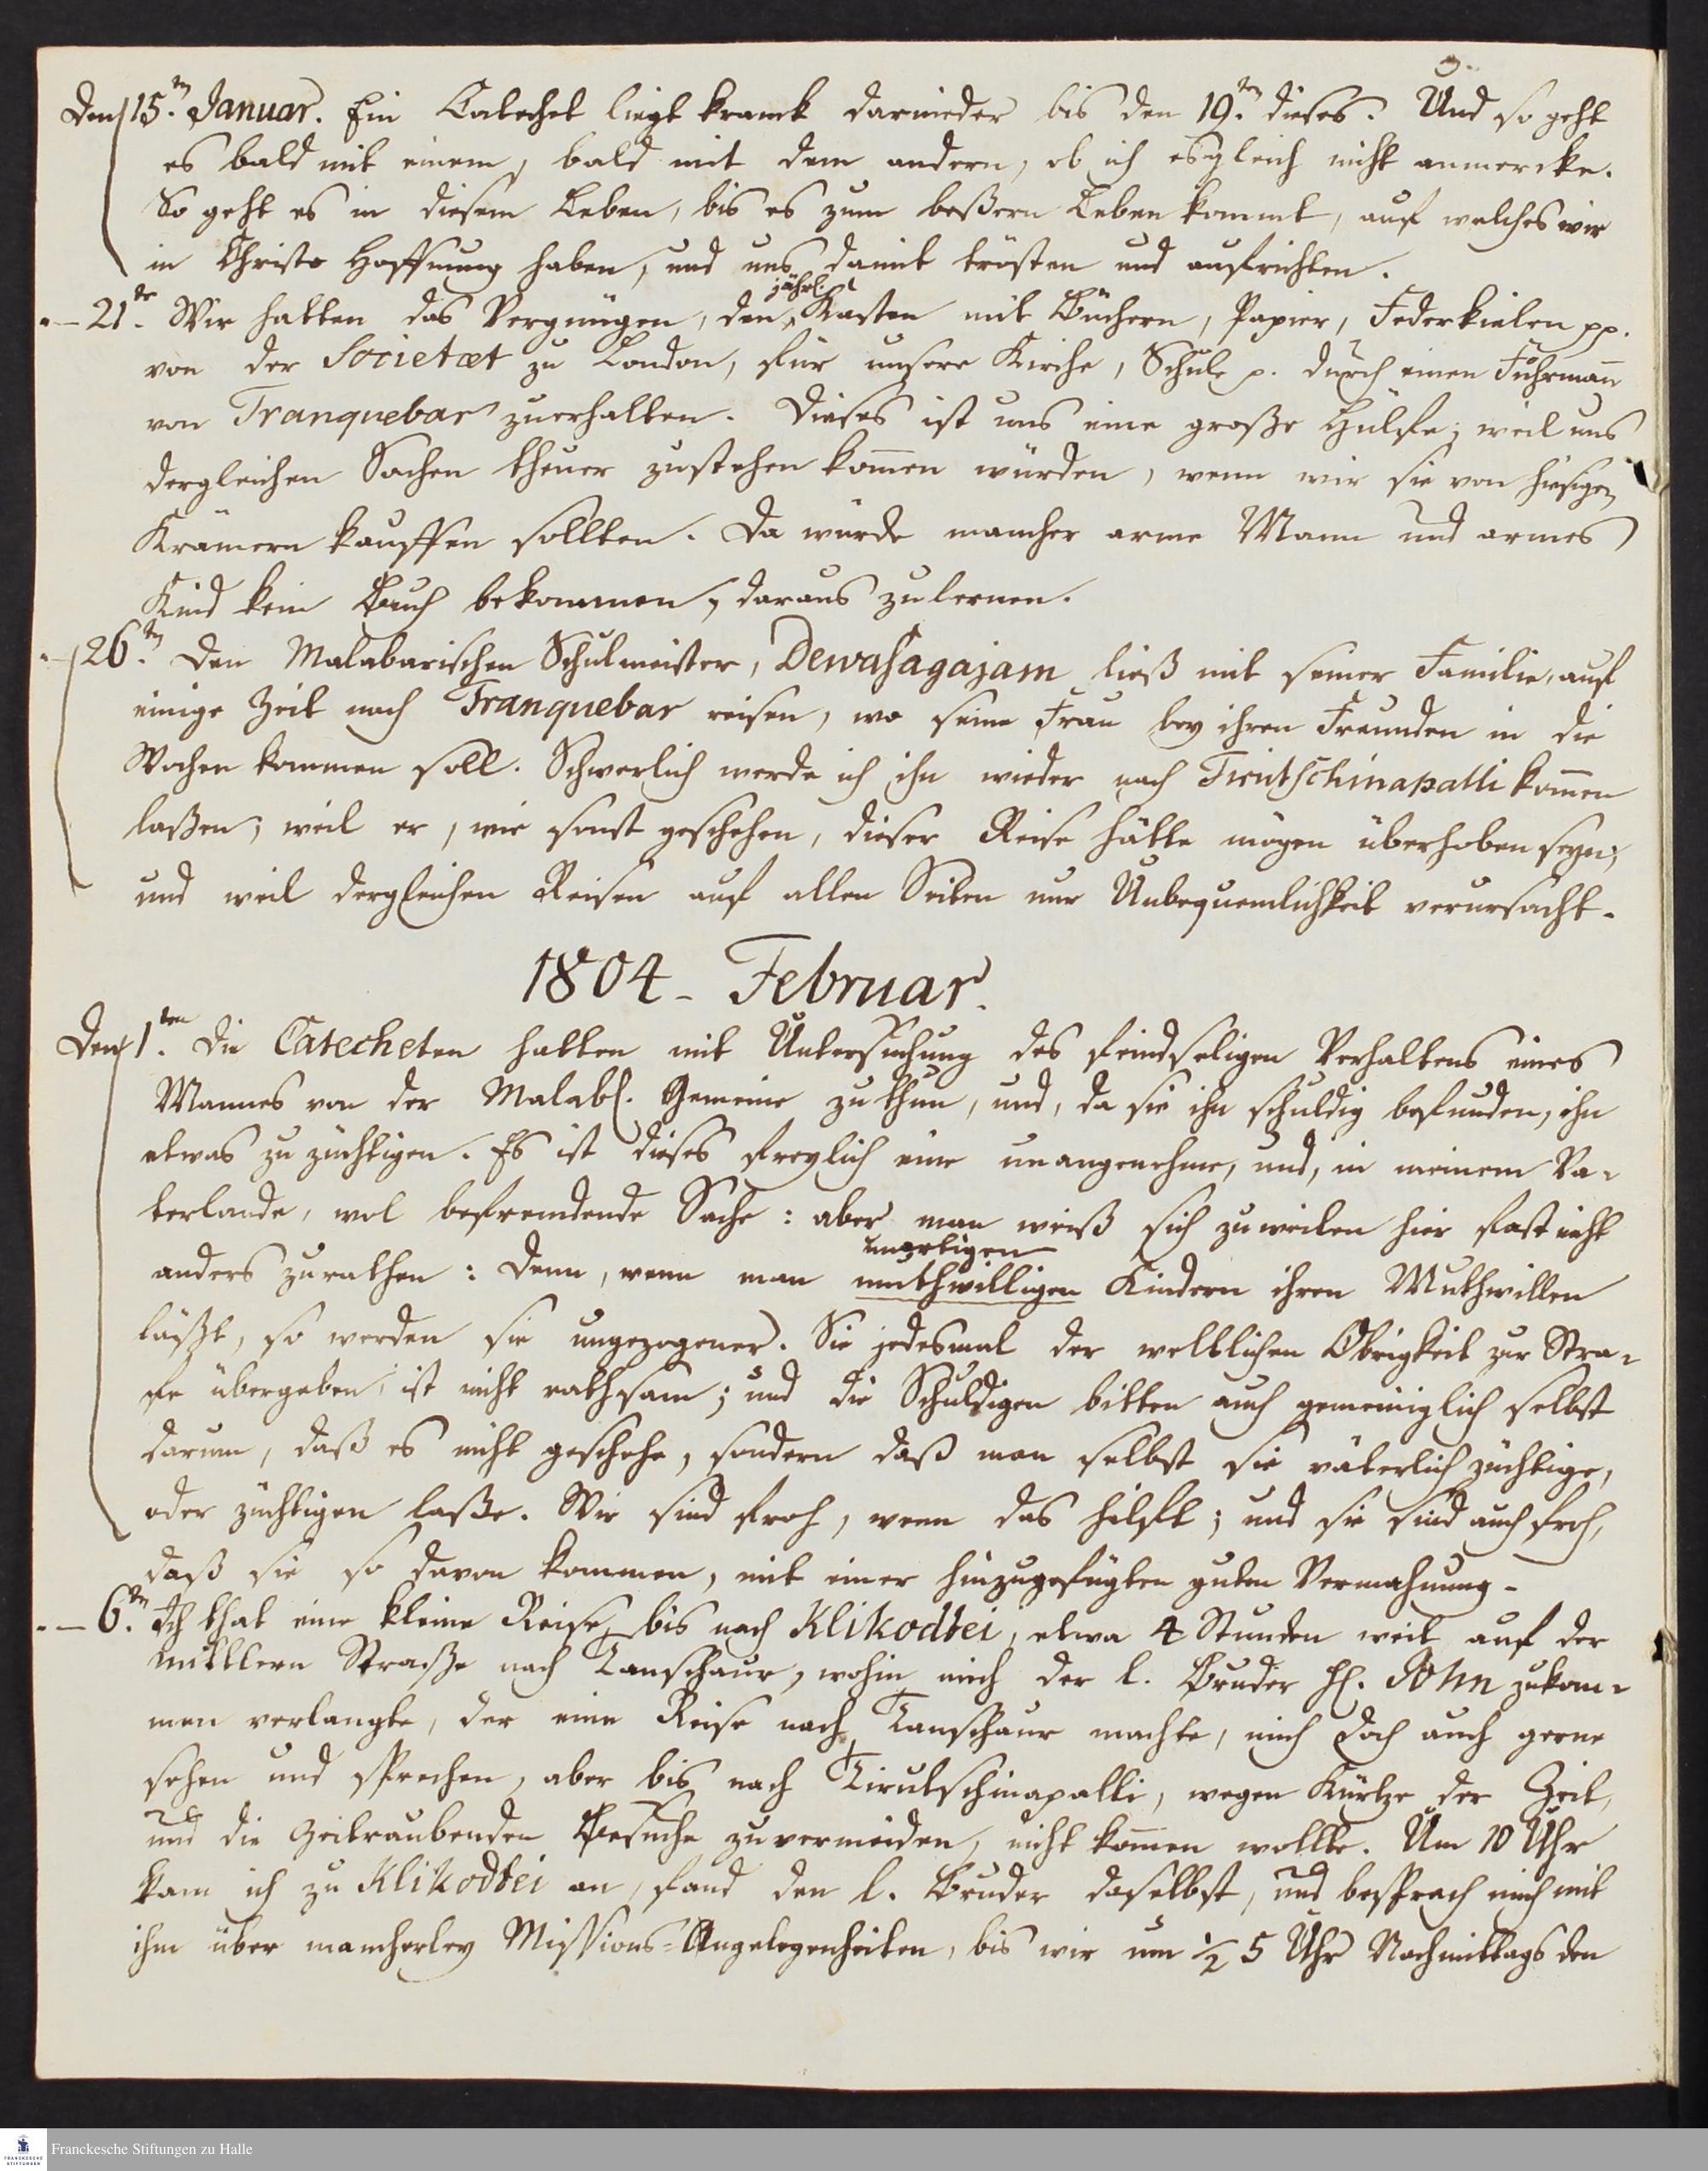 Den 15.ten Januar. Ein Catechet liegt kranck darnieder bis den 19.ten dieses. Und so geht
es bald mit einem, bald mit dem andern, ob ich es gleich nicht anmercke.
So geht es in diesem Leben, bis es zum beßern Leben kommt, auf welches wir
in Christo Hoffnung haben, und uns damit trösten und aufrichten.
jährl.
- - 21.ten Wir hatten das Vergnügen, den Kasten mit Büchern, Papier, Federkielen pp.
von der Societæt zu London, für unsere Kirche, Schule p. durch einen Fuhrmañ
von Tranquebar zuerhalten. Dieses ist uns eine große Hülfe; weil uns
dergleichen Sachen theuer zustehen kom̃en würden, wenn wir sie von hiesigen
Krämern kauffen sollten. Da würde mancher arme Mann und armes
Kind kein Buch bekommen, daraus zulernen.
- - 26.ten Den Malabarischen Schulmeister, Dewasagajam ließ mit seiner Familie, auf
einige Zeit nach Tranquebar reisen, wo seine Frau bey ihren Freunden in die
Wochen kommen soll. Schwerlich werde ich ihn wieder nach Tirutschinapalli kom̃en
laßen; weil er, wie sonst geschehen, dieser Reise hätte mögen überhoben seyn;
und weil dergleichen Reisen auf allen Seiten nur Unbequemlichkeit verursacht.
1804 - Februar.
Den 1.ten Die Catecheten hatten mit Untersuchung des feindseligen Verhaltens eines
Mannes von der Malabl. Gemeine zu thun, und, da sie ihn schuldig befunden, ihn
etwas zu züchtigen. Es ist dieses freylich eine unangenehme, und, in meinem Va-
terlande, wol befremdende Sache: aber man weiß sich zuweilen hier fast nicht
unartigen
anders zurathen: Denn, wenn man muthwilligen Kindern ihren Muthwillen
läßt, so werden sie ungezogener. Sie jedesmal der weltlichen Obrigkeit zur Stra-
fe übergeben, ist nicht rathsam; und die Schuldigen bitten auch gemeiniglich selbst
darum, daß es nicht geschehe, sondern daß man selbst sie väterlich züchtige,
oder züchtigen laße. Wir sind froh, wenn das hilft; und sie sind auch froh,
daß sie so davon kommen, mit einer hinzugefügten guten Vermahnung.
- - 6.ten Ich that eine kleine Reise, bis nach Klikodtei, etwa 4 Stunden weit auf der
mittlern Straße nach Tanschaur, wohin mich der l. Bruder H. John zukom-
men verlangte, der eine Reise nach Tanschaur machte, mich doch auch gerne
sehen und sprechen, aber bis nach Tirutschinapalli, wegen Kürtze der Zeit,
und die Zeitraubenden Besuche zuvermeiden, nicht kom̃en wollte. Um 10 Uhr
kam ich zu Klikodtei an, fand den l. Bruder daselbst, und besprach mich mit
ihm über mancherley Missions-Angelegenheiten, bis wir um ½ 5 Uhr Nachmittags den
Franckesche Stiftungen zu Halle
FRANCKESCHE STIFTUNGEN